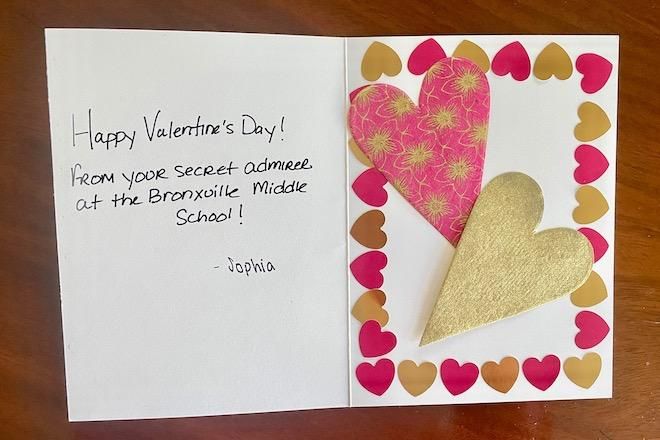 Happy Valentine's Day!
From your secret admirer
at the Bronxville Middle
School!
- Sophia